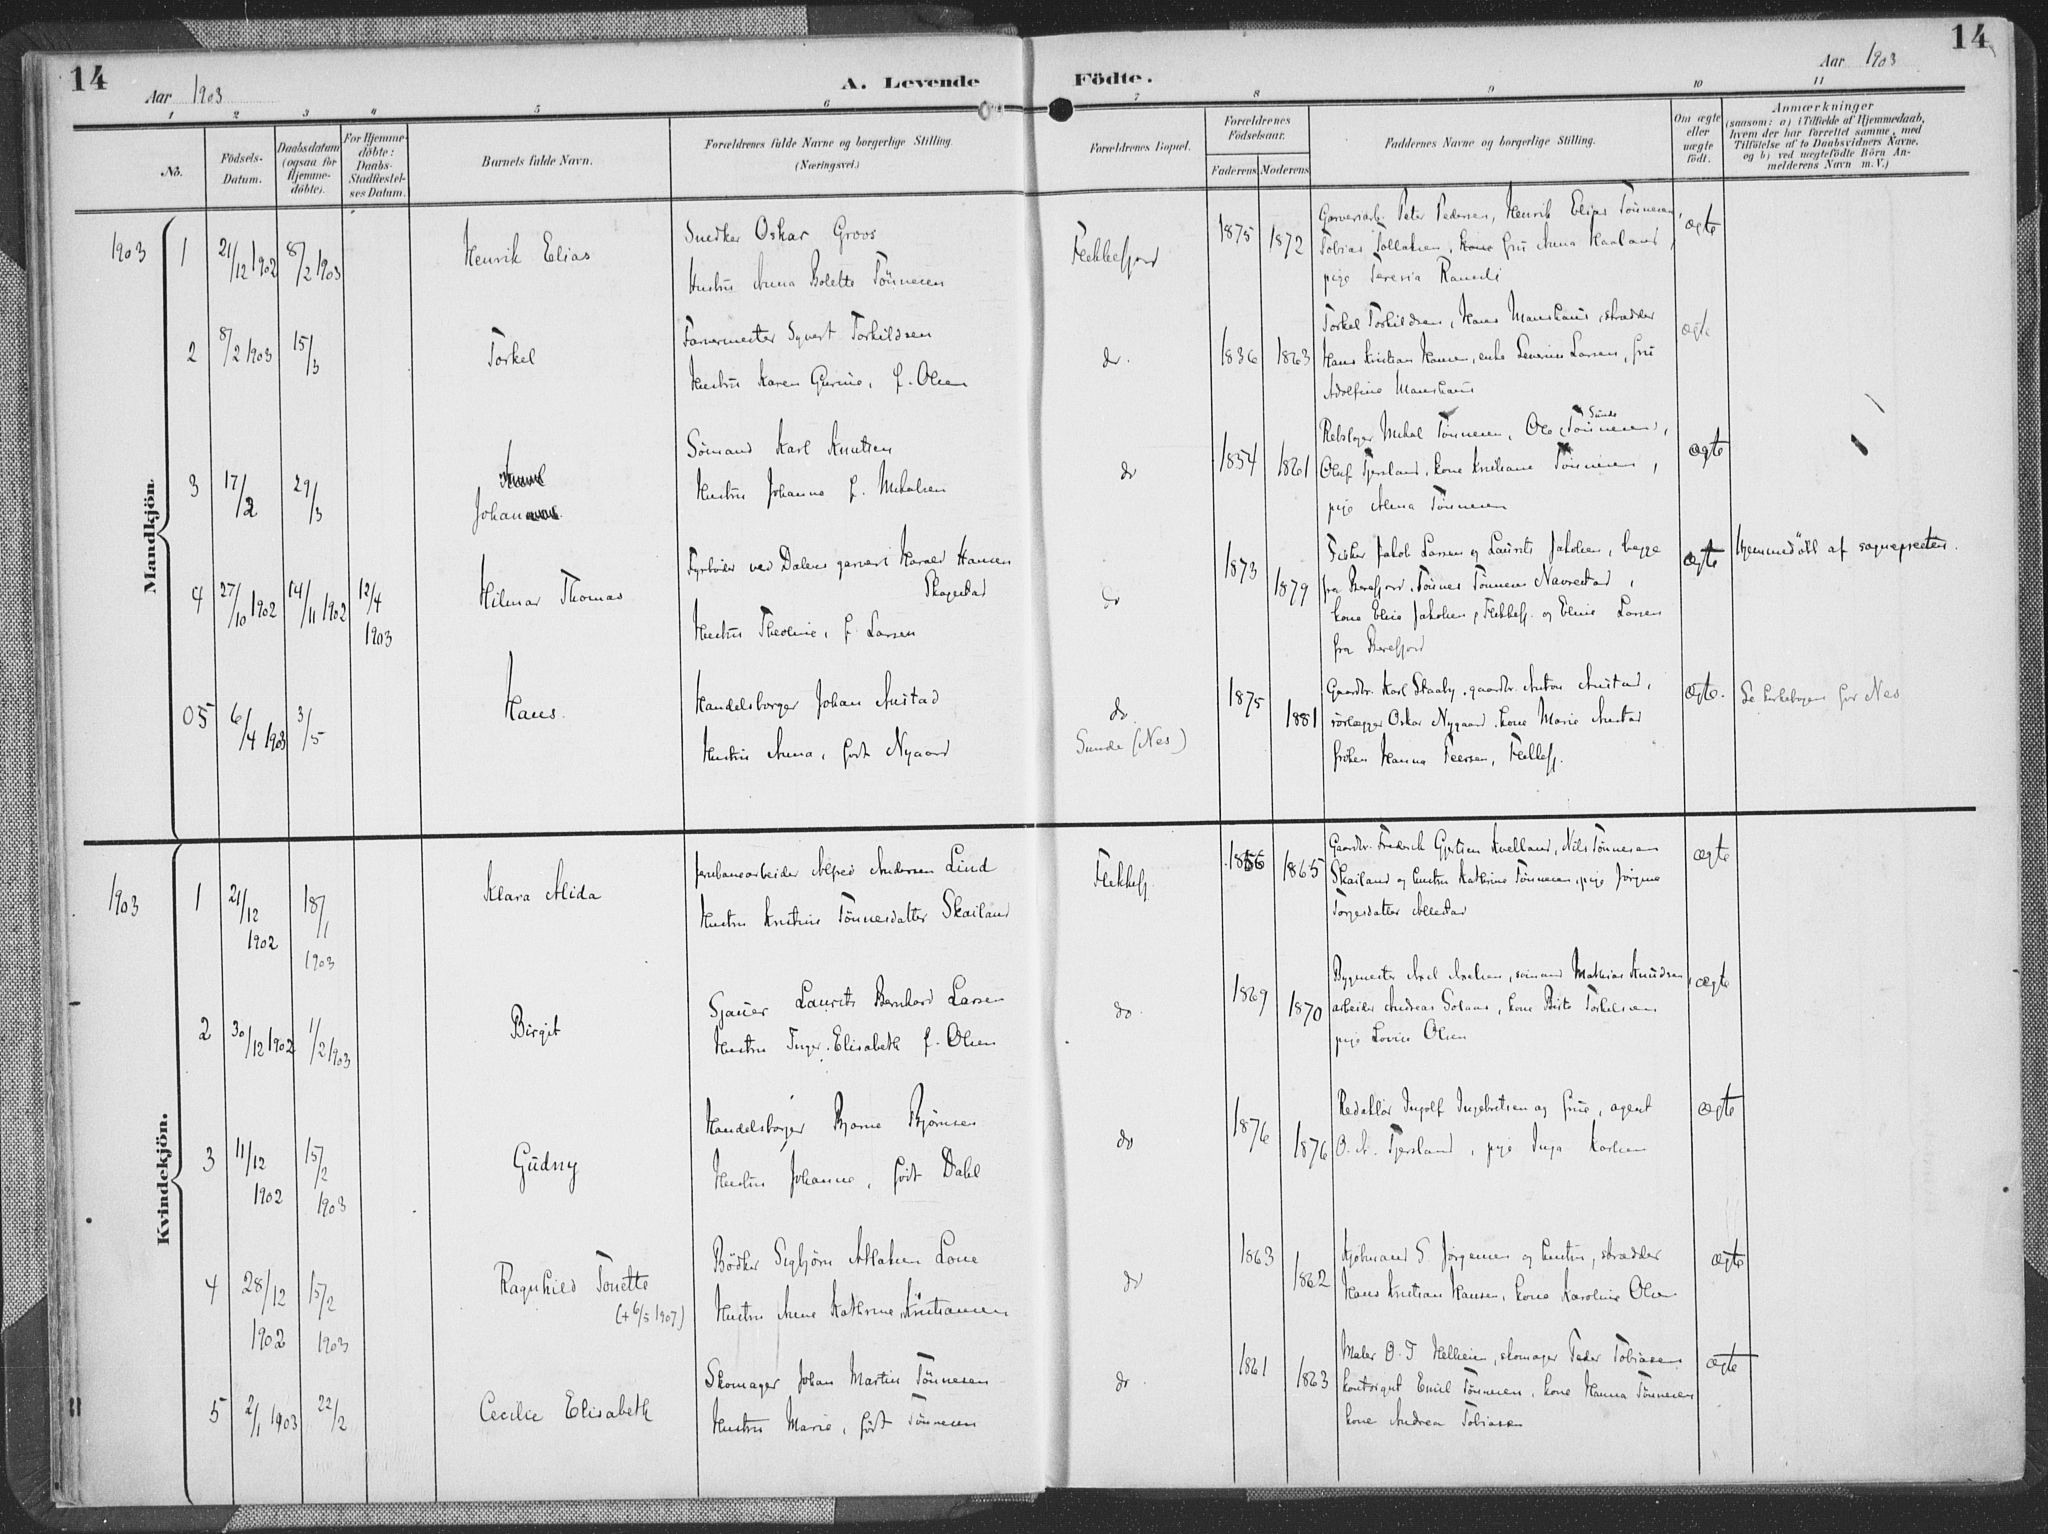 14
Aar 1903
A. Levende
Födte.
Aar 1903
14
1 2 3 4 5 6 7 8 9 10 11
No.
Födsels-
Datum.
Daabsdatum
(ogsaa for
Hjemme-
döbte).
For Hjemme-
döbte:
Daabs-
Stadfæstel-
ses Datum.
Barnets fulde Navn.
Forældrenes fulde Navne og borgerlige Stilling.
(Næringsvei.)
Forældrenes Bopæl.
Forældrenes
Födselsaar.
Faderens Moderens
Faddernes Navne og borgerlige Stilling.
Om ægte
eller
uægte
födt.
Anmærkninger
(saasom: a) i Tilfælde af Hjemmedaab,
hvem der har forrettet samme, med
Tilföielse af to Daabsvidners Navne,
og b) ved uægtefödte Börn An-
melderens Navn m. V.)
Mandkjön.
1903 1 21/12 1902 8/2 1903
Henrik Elias
Snedker Oskar Groos
Hustru Anna Bolette Tönnesen
Flekkefjord
1875 1872
Garversv. Peter Pedersen, Henrik Elias Tönnesen,
Tobias Tollaksen, kone frú Anna Haaland,
pige Teresia
ægte
2 8/2 1903 15/3
Torkel
Farvermester Syvert Torkildsen
Hustru Karen Gurine, f. Olsen
do.
1836 1863
Torkel Torkildsen, Hans Manshaus, skrædder
Hans Kristian Hansen, enke Severine Larsen, frú
Adolfine Manshaus
ægte
3 17/2 29/3
Johan
Sömand Karl Knutsen
Hustru Johanne f. Mikalsen
do
1854 1861
Rebslager Mikal Tönnesen, Ole Sunde Tönnesen,
Oluf Fjersland, kone Kristiane Tönnesen,
pige Alma Tönnesen
ægte
4 27/10 1902 14/11 1902 12/4
1903
Hilmar Thomas
Fyrböder ved Dalens garveri Harald Hansen
Skogestad
Hustru Theoline, f. Larsen
do
1873 1879
Fisker Jakob Larsen og Laurits Jakobsen, begge
fra Berefjord, Tönnes Tönnesen Navrestad,
kone Elise Jakobsen, Flekkefj. og Elise Larsen
fra Berefjord
ægte
Hjemmedöbt af sognepresten.
05 6/4 1903 3/5
Hans.
Handelsborger Johan Austad
Hustru Anna, födt Nygaard
do.
Sunde (Nes)
1875 1881
Gaardbr. Karl Skaaby, gaardbr. Anton Austad,
rörlægger Oskar Nygaard, kone Marie Austad
fröken Hanna Feersen, Flekkefj.
ægte.
Se kirkebogen for Nes
Kvindekjön.
1903 1 21/12
1902
18/1
1903
Klara Alida
Jernbanearbeider Alfred Andersen Lind
Hustru Kristine Tönnesdatter Skailand
Flekkefj.
1866 1865
Gaardbr. Frederik Gjertsen Kvelland, Nils Tönnesen
Skailand og hustru Kathrine Tönnesen, pige Jörgine
Torgesdatter Allestad
ægte
2 30/12 1902 1/2 1903
Birgit
Sjauer Laurits Bernhard Larsen
Hustru Inger Elisabeth f. Olsen
do.
1869 1870
Bygmester Axel Axelsen, sömand Mathias Knudsen,
arbeider Andreas Solaas, kone Berte Torkelsen
pige Lovise Olsen
ægte
3 11/12
1902
15/2
1903
Gudny
Handelsborger Bjarne Björnsen
Hustru Johanne, födt Dahl
do
1876 1876
Redaktör Ingolf Ingebretsen og frue, agent
O. A. Fjersland, pige Inga Karlsen
ægte
4 28/12
1902
15/2
1903
Ragnhild Tonette
(+ 6/5 1907)
Bödker Sigbjörn Aslaksen Lone
Hustru Anne Kathrine Kristiansen
do
1863 1862
Kjöbmand S. Jörgensen og hustru, skrædder
Hans Kristian Hansen, kone Karoline Olsen
ægte
5 2/1 1903 22/2
Cecilie Elisabeth
Skomager Johan Martin Tönnesen
Hustru Marie, födt Tönnesen
do.
1861 1863
Maler O. T. Helleien, skomager Peder Tobiasen
kontorist Emil Tönnesen, kone Hanna Tönnesen
kone Andrea Tobiasen
ægte